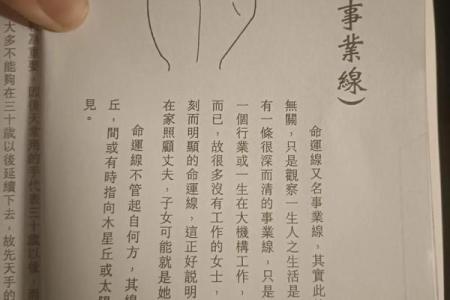 事業線）
命運線又名事業線，其實此
無關，只是觀察一生人之生活是
有一條很深而清的事業線，只是
一個行業或一生在大機構工作，
而已，故很多沒有工作的女士，
刻而明顯的命運線，這正好説明
在家照顧丈夫，子女可能就是她
命運線不管起自何方，其線
丘，間或有時指向木星丘或太陽
見。
為重要，因後天常用的手代表三十歲以後，
大多不能夠在三十歲以後延續下去，故先天手的